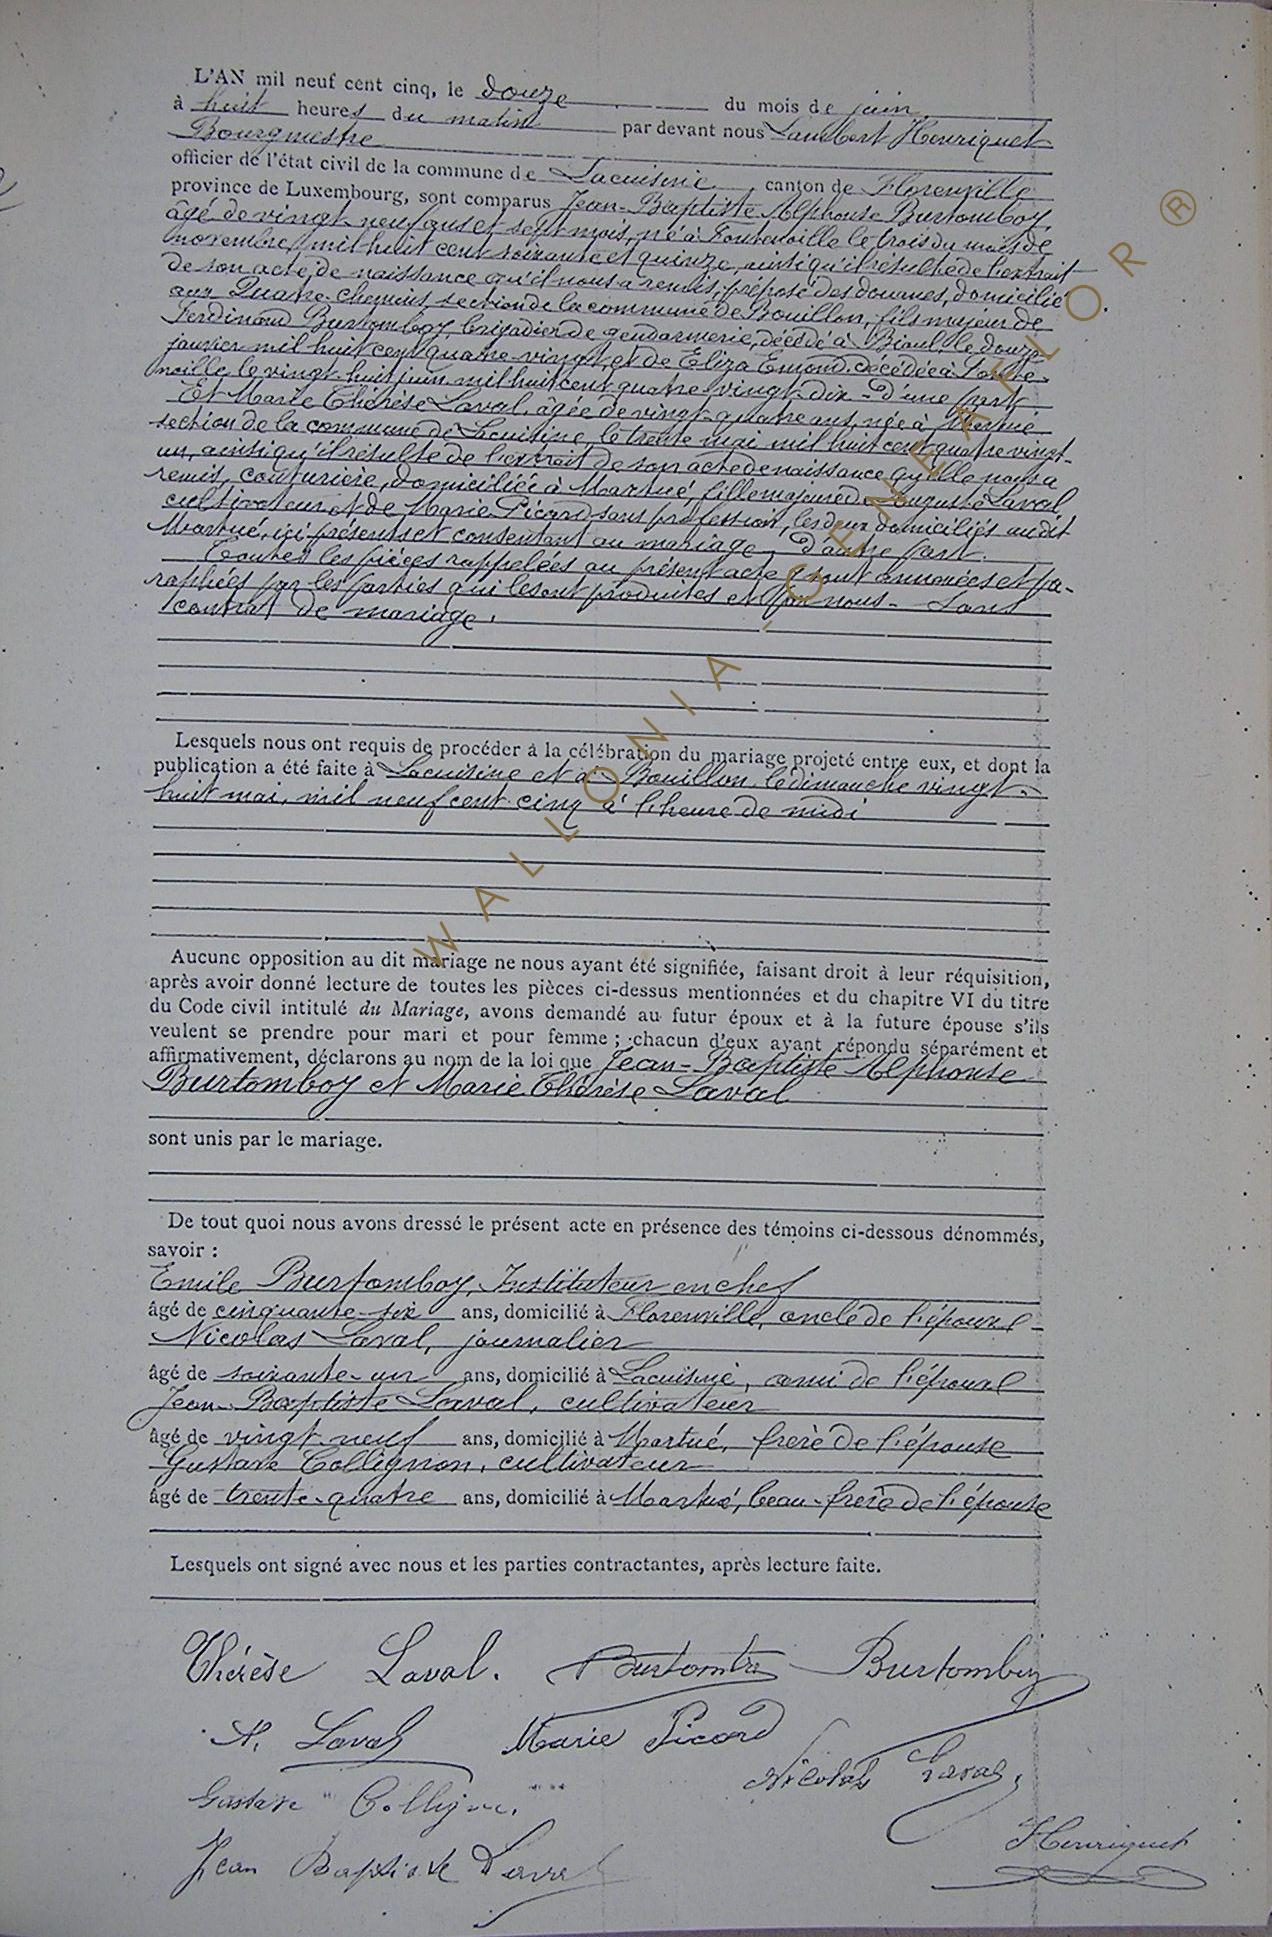 L'AN mil neuf cent cinq, le douze du mois de juin
à huit heures du matin par devant nous Lambert Henriquet
Bourgmestre
officier de l'état civil de la commune de Lacuisine, canton de Florenville
province de Luxembourg, sont comparus Jean-Baptiste Alphonse Burtomboy,
âgé de vingt-neuf ans et sept mois, né à Fontenoille le trois du mois de
novembre mil huit cent soixante et quinze, ainsi qu'il résulte de l'extrait
de son acte de naissance qu'il nous a remis, préposé des douanes, domicilié
aux Quatre-chemins, section de la commune de Bouillon, fils majeur de
Ferdinand Burtomboy, brigadier de gendarmerie, décédé à Bioul, le douze
janvier mil huit cent quatre-vingt, et de Eliza Emond, décédée à Fonte-
noille le vingt-huit juin mil huit cent quatre vingt-dix - D'une part,
Et Marie Thérèse Laval, âgée de vingt-quatre ans, née à Martué
section de la commune de Lacuisine, le trente mai mil huit cent quatre vingt-
un, ainsi qu'il résulte de l'extrait de son acte de naissance qu'elle nous a
remis, couturière, domiciliée à Martué, fille majeure de Auguste Laval
cultivateur et de Marie Picard sans profession, les deux domiciliés au dit
Martué, ici présents et consentant au mariage, D'autre part.
Toutes les pièces rappelées au présent acte sont annexées et pa-
raphées par les parties qui les ont produites et par nous - Sans
contrat de mariage.
Lesquels nous ont requis de procéder à la célébration du mariage projeté entre eux, et dont la
publication a été faite à Lacuisine et à Bouillon, le dimanche vingt-
huit mai, mil neuf cent cinq à l'heure de midi
Aucune opposition au dit mariage ne nous ayant été signifiée, faisant droit à leur réquisition,
après avoir donné lecture de toutes les pièces ci-dessus mentionnées et du chapitre VI du titre
du Code civil intitulé du Mariage, avons demandé au futur époux et à la future épouse s'ils
veulent se prendre pour mari et pour femme ; chacun d'eux ayant répondu séparément et
affirmativement, déclarons au nom de la loi que Jean-Baptiste Alphonse
Burtomboy et Marie Thérèse Laval
sont unis par le mariage.
De tout quoi nous avons dressé le présent acte en présence des témoins ci-dessous dénommés,
savoir :
Emile Burtomboy, Instituteur en chef
âgé de cinquante-six ans, domicilié à Florenville, oncle de l'époux
Nicolas Laval, journalier
âgé de soixante-un ans, domicilié à Lacuisine, ami de l'époux
Jean-Baptiste Laval, cultivateur
âgé de vingt neuf ans, domicilié à Martué, frère de l'épouse
Gustave Collignon, cultivateur
âgé de trente-quatre ans, domicilié à Martué, beau-frère de l'épouse
Lesquels ont signé avec nous et les parties contractantes, après lecture faite.
Thérèse Laval. Burtomboy Burtomboy
A. Laval Marie Picard
Nicolas Laval.
Gustave Collignon.
Henriquet
Jean Baptiste Laval
WALLONIA - GENEAFLOR ®